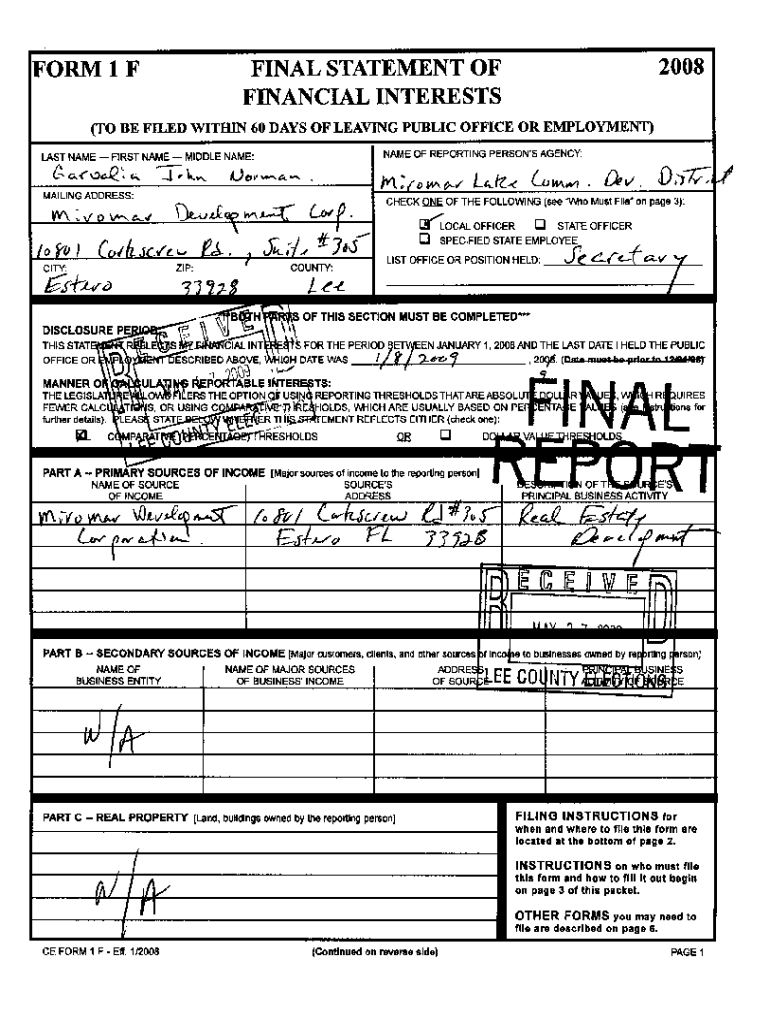 FORM 1 F
FINAL STATEMENT OF
2008
FINANCIAL INTERESTS
(TO BE FILED WITHIN 60 DAYS OF LEAVING PUBLIC OFFICE OR EMPLOYMENT)
LAST NAME — FIRST NAME — MIDDLE NAME:
John Norman
NAME OF REPORTING PERSON'S AGENCY:
Miromar Lake Comm. Dev. District
MAILING ADDRESS:
Miromar Development Corp.
CHECK ONE OF THE FOLLOWING (see "Who Must File" on page 3):
LOCAL OFFICER STATE OFFICER
SPECIFIED STATE EMPLOYEE
10801 Corkscrew Rd., Suite #305
LIST OFFICE OR POSITION HELD: Secretary
CITY: ZIP: COUNTY:
Estero 33928 Lee
***BOTH PARTS OF THIS SECTION MUST BE COMPLETED***
DISCLOSURE PERIOD:
THIS STATEMENT REFLECTS MY FINANCIAL INTERESTS FOR THE PERIOD BETWEEN JANUARY 1, 2008 AND THE LAST DATE I HELD THE PUBLIC
OFFICE OR EMPLOYMENT DESCRIBED ABOVE, WHICH DATE WAS 1/8/2009 , 2008. (Date must be prior to 12/31/08)
9
RECEIVED
MANNER OF CALCULATING REPORTABLE INTERESTS:
THE LEGISLATURE ALLOWS FILERS THE OPTION OF USING REPORTING THRESHOLDS THAT ARE ABSOLUTE DOLLAR VALUES, WHICH REQUIRES
FEWER CALCULATIONS, OR USING COMPARATIVE THRESHOLDS, WHICH ARE USUALLY BASED ON PERCENTAGE VALUES (see instructions for
further details). PLEASE STATE BELOW WHETHER THIS STATEMENT REFLECTS EITHER (check one):
COMPARATIVE (PERCENTAGE) THRESHOLDS OR DOLLAR VALUE THRESHOLDS
LEE COUNTY ELECTIONS
FINAL
REPORT
PART A -- PRIMARY SOURCES OF INCOME [Major sources of income to the reporting person]
NAME OF SOURCE SOURCE'S DESCRIPTION OF THE SOURCE'S
OF INCOME ADDRESS PRINCIPAL BUSINESS ACTIVITY
Miromar Development 10801 Corkscrew Rd #305 Real Estate
Corporation. Estero FL 33928 Development
RECEIVED
PART B -- SECONDARY SOURCES OF INCOME [Major customers, clients, and other sources of income to businesses owned by reporting person]
NAME OF NAME OF MAJOR SOURCES ADDRESS PRINCIPAL BUSINESS
BUSINESS ENTITY OF BUSINESS' INCOME OF SOURCE ACTIVITY OF SOURCE
LEE COUNTY ELECTIONS
N/A
PART C -- REAL PROPERTY [Land, buildings owned by the reporting person]
N/A
FILING INSTRUCTIONS for
when and where to file this form are
located at the bottom of page 2.
INSTRUCTIONS on who must file
this form and how to fill it out begin
on page 3 of this packet.
OTHER FORMS you may need to
file are described on page 6.
CE FORM 1 F - Eff. 1/2008
(Continued on reverse side)
PAGE 1